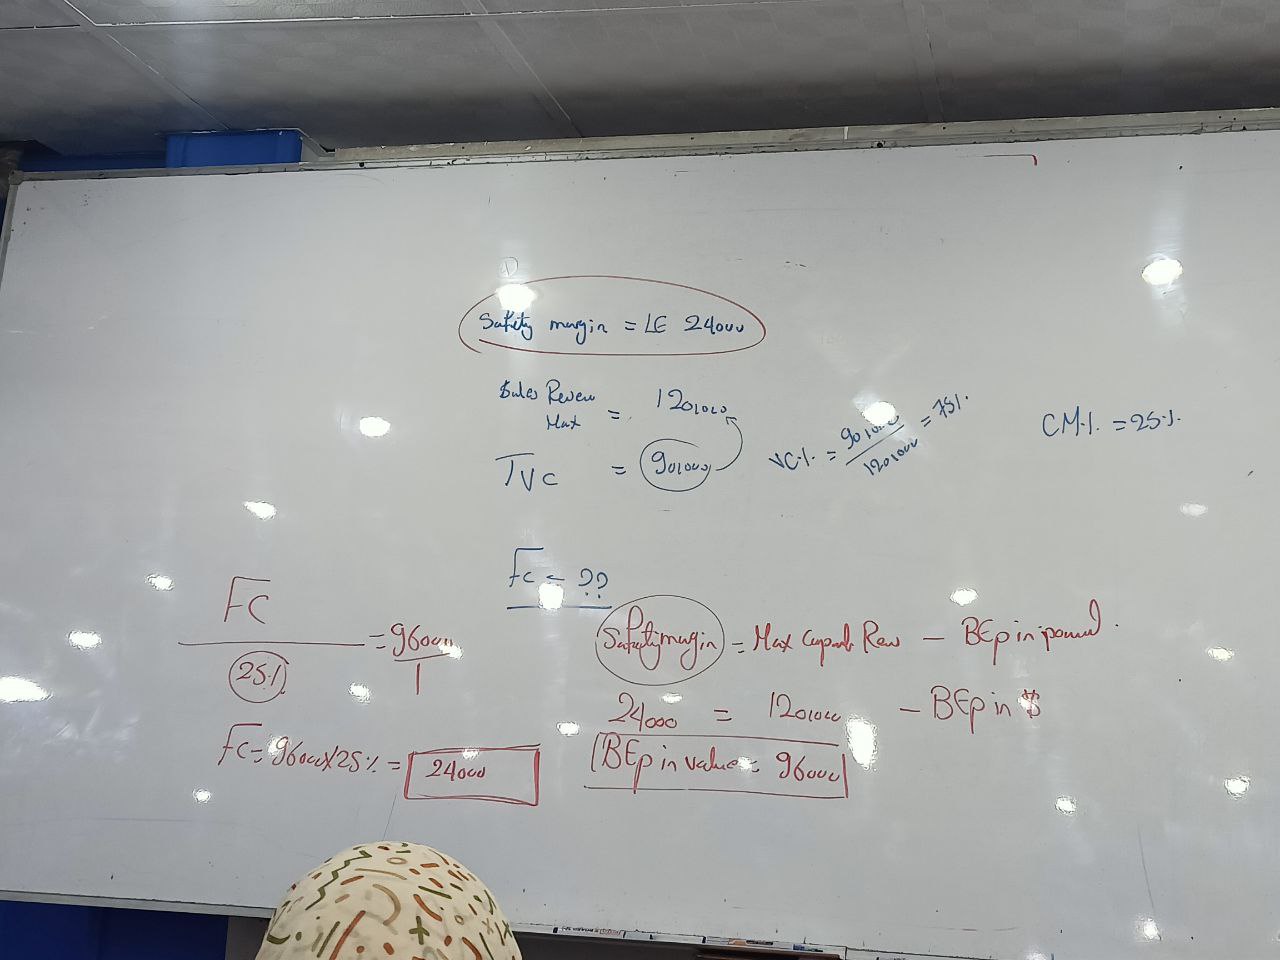 Safety margin = LE 24000
Sales Reven Max = 120,000
TVC = 90,000
VC% = 90,000 / 120,000 = 75%
CM% = 25%
FC = ??
FC / 25% = 96000 / 1
Safety margin = Max Rev - BEP in pound.
24000 = 120,000 - BEP in $
BEP in value = 96000
FC = 96000 x 25% = 24000